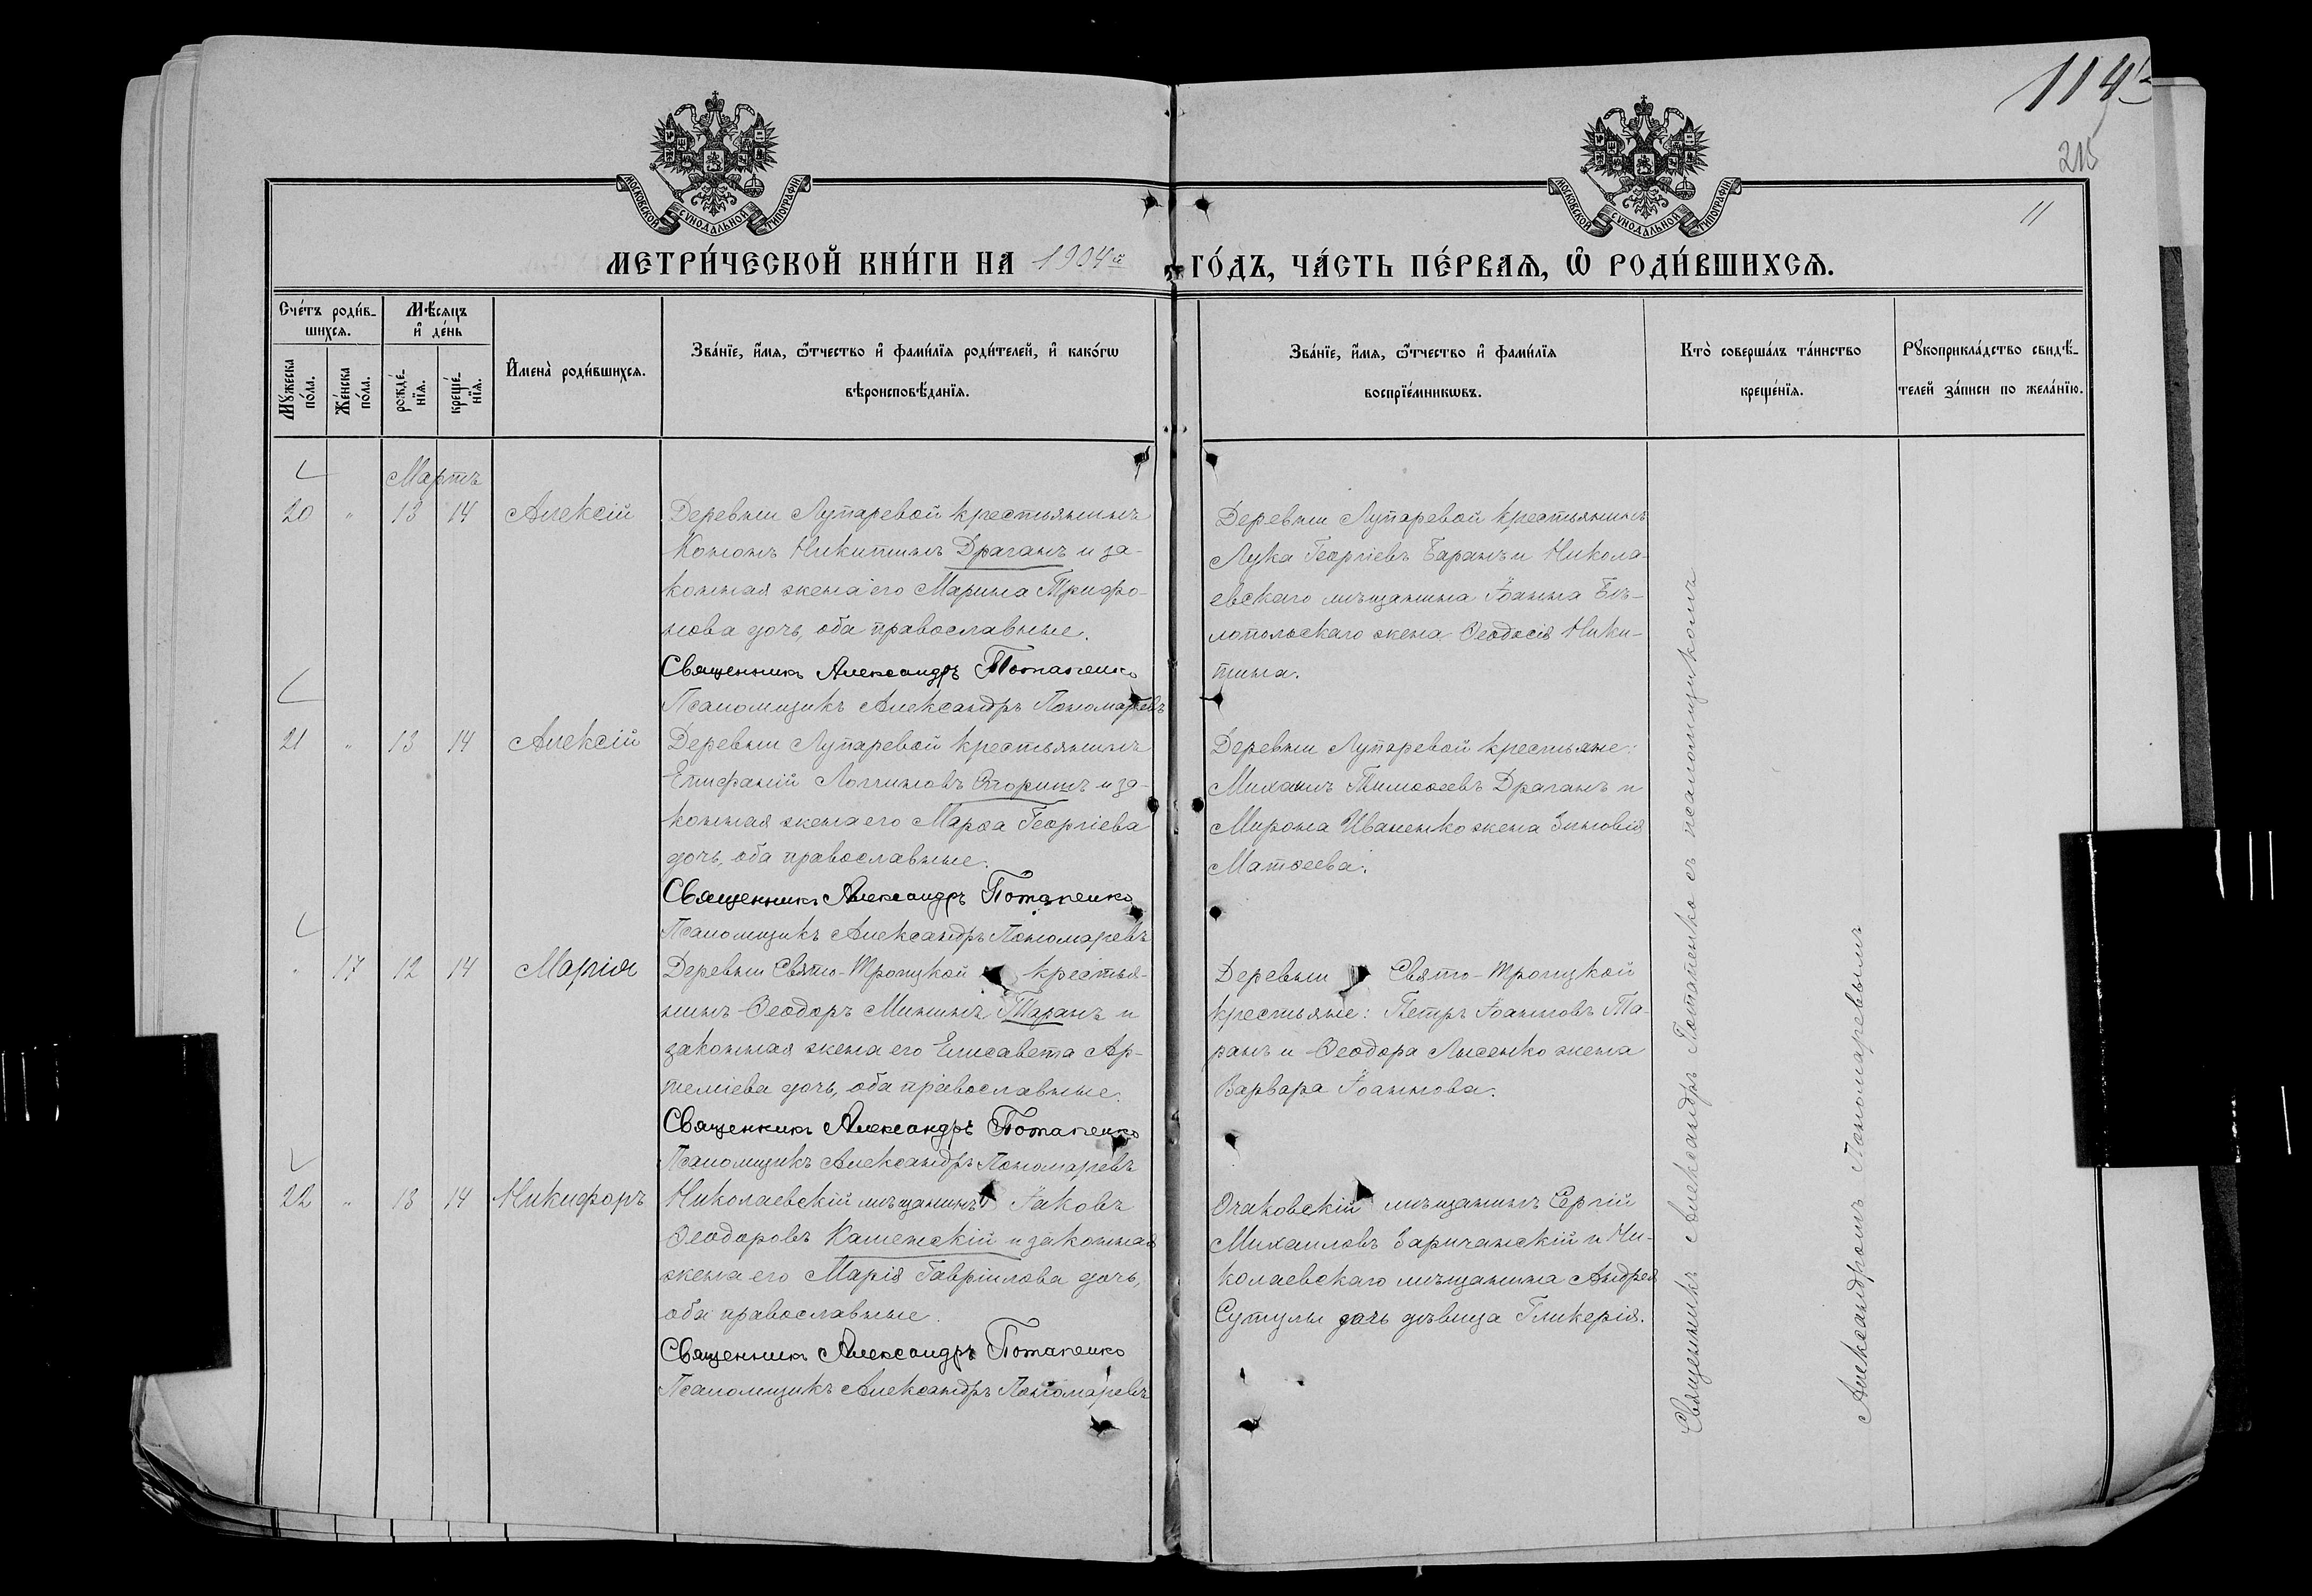 1143
215
11
МОСКОВСКОЙ СѴНОДАЛЬНОЙ ТИПОГРАФІИ.
МОСКОВСКОЙ СѴНОДАЛЬНОЙ ТИПОГРАФІИ.
МЕТРИ́ЧЕСКОЙ КНИ́ГИ НА 1904й
ГО́ДЪ, ЧА́СТЬ ПЕ́РВАЯ, Ѽ РОДИ́ВШИХСЯ.
Сче́тъ роди́в-
шихся.
Мꙋ́жеска по́ла.
Же́нска по́ла.
Мѣ́сяцъ
и҆ де́нь
рожде́-
нїя.
креще́-
нїя.
И҆мена̀ роди́вшихся.
Зва́нїе, и҆́мя, ѻ҆́тчество и҆ фами́лїя роди́телей, и҆ како́гѡ
вѣроисповѣ́данїя.
Зва́нїе, и҆́мя, ѻ҆́тчество и҆ фами́лїя
воспрїе́мникѡвъ.
Кто̀ соверша́лъ та́инство
креще́нїя.
Рꙋкоприкла́дство свидѣ́-
телей за́писи по жела́нїю.
Мартъ
20 " 13 14 Алексій
Деревни Лупаревой крестьянинъ
Кононъ Никитинъ Драганъ и за-
конная жена его Марина Трифо-
нова дочь, оба православные.
Священникъ Александръ Потапенко
Псаломщикъ Александръ Пономаревъ
Деревни Лупаревой крестьянинъ
Лука Георгіевъ Баранъ и Никола-
евскаго мѣщанина Іоанна Бѣ-
лопольскаго жена Ѳеодосія Ники-
тина.
21 " 13 14 Алексій
Деревни Лупаревой крестьянинъ
Епифаній Логгиновъ и за-
конная жена его Марѳа Георгіева
дочь, оба православные.
Священникъ Александръ Потапенко
Псаломщикъ Александръ Пономаревъ
Деревни Лупаревой крестьяне:
Михаилъ Тимоѳеевъ Драганъ и
Мирона Иваненко жена Зиновія
Матѳеева.
" 17 12 14 Марія
Деревни Свято-Троицкой крестья-
нинъ Ѳеодоръ Мининъ Таранъ и
законная жена его Елисавета Ар-
теміева дочь, оба православные.
Священникъ Александръ Потапенко
Псаломщикъ Александръ Пономаревъ
Деревни Свято-Троицкой
крестьяне: Петръ Іоанновъ Та-
ранъ и Ѳеодора Лысенко жена
Варвара Іоаннова.
22 " 13 14 Никифоръ
Николаевскій мѣщанинъ Іаковъ
Ѳеодоровъ Каменскій и законная
жена его Марія Гавріилова дочь,
оба православные.
Священникъ Александръ Потапенко
Псаломщикъ Александръ Пономаревъ
Очаковскій мѣщанинъ Сергій
Михаиловъ Заричанскій и Ни-
колаевскаго мѣщанина Андрея
Сутулы дочь дѣвица Гликерія.
Священникъ Александръ Потапенко съ псаломщикомъ
Александромъ Пономаревымъ